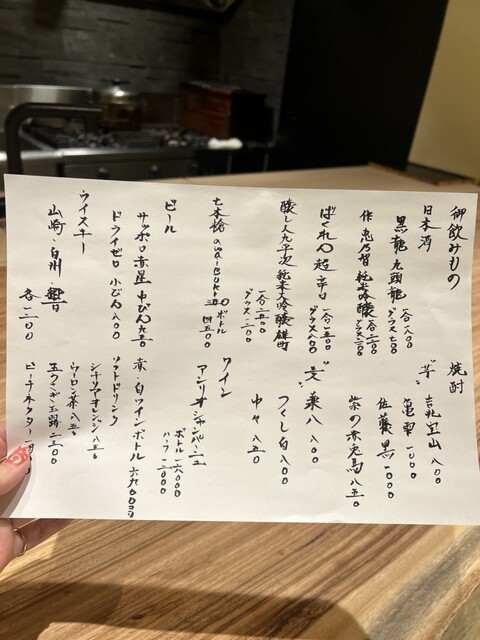 御飲みもの
日本酒
黒龍 九頭龍 一合一八〇〇
グラス七〇〇
作 恵乃智 純米吟醸 一合二一〇〇
グラス一二〇〇
ばくれん 超辛口 一合一五〇〇
グラス八〇〇
醸し人九平次 純米大吟醸 雄町
一合二五〇〇
グラス一三〇〇
七本槍 awaibuki ボトル
四五〇〇
ビール
サッポロ赤星 中びん 九五〇
ドライゼロ 小びん 八〇〇
ウイスキー
山崎・白州・響
各一二〇〇
焼酎
“芋”
吉兆宝山 八〇〇
亀雫 一〇〇〇
佐藤黒 一〇〇〇
紫の赤兎馬 八五〇
“麦”
兼八 一〇〇〇
つくし白 八〇〇
中々 八五〇
ワイン
アンリオ シャンパーニュ
ボトル 一六〇〇〇
ハーフ 一二〇〇〇
赤・白ワインボトル 六九〇〇ヨリ
ソフトドリンク
シチリアオレンジ 八五〇
ウーロン茶 八五〇
玉つゆぎ玉露 二五〇〇
ピーチネクター